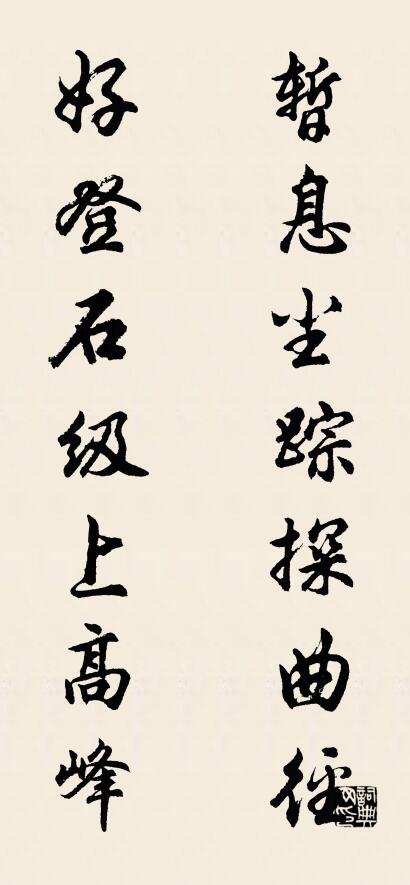 暂息尘踪探曲径
好登石级上高峰